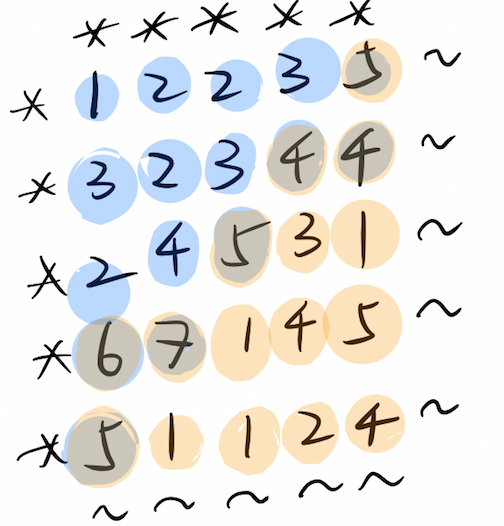 * * * * *
* 1 2 2 3 5 ~
* 3 2 3 4 4 ~
* 2 4 5 3 1 ~
* 6 7 1 4 5 ~
* 5 1 1 2 4 ~
~ ~ ~ ~ ~